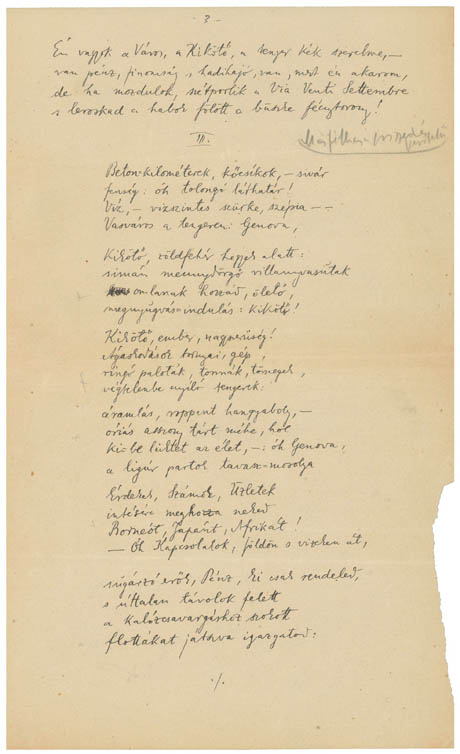 - 3 -
Én vagyok a Város, a Kikötő, a tenger kék szerelme, —
van pénz, finomság s hadihajó, van, mert én akarom,
de ha mordulok, szétporlik a Via Venti Settembre
s leroskad a habok fölött a büszke fénytorony!
III.
Beton-kilométerek, kőcsíkok, — sivár
fenség: óh tolongó láthatár!
Víz, — vízszintes szürke, szépia — —
Vasváros a tengeren: Genova,
Kikötő, zöldfehér hegyek alatt:
simán mennydörgő villanyvasutak
omlanak hozzád, ölelő,
megnyugvás-indulás: Kikötő!
Kikötő, ember, nagyszerűség!
Ágaskodások tornyai, gép,
ringó paloták, tonnák, tömegek,
végtelenbe nyíló tengerek:
áramlás, roppant hangyaboly, —
óriás asszony tárt méhe, hol
ki-be lüktet az élet, —: óh Genova,
a ligúr partok tavasz-mosolya
Érdekek, Számok, Üzletek
intésére meghozza neked
Borneót, Japánt, Afrikát!
— Óh Kapcsolatok, földön s vizeken át,
sugárzó erők, Pénz, ki csak rendeled,
s úttalan távolok felett
a kalózcsavargáshoz szokott
flottákat játszva igazgatod:
./.